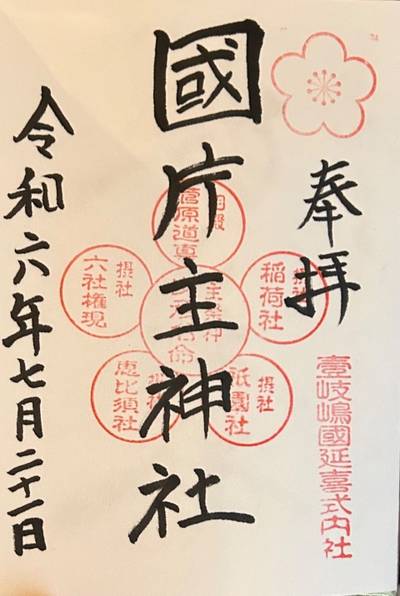 奉拝
壹岐嶋國延喜式内社
國片主神社
菅原道真
摂社
稲荷社
摂社
祇園社
恵比須社
摂社
六社権現
令和六年七月二十一日